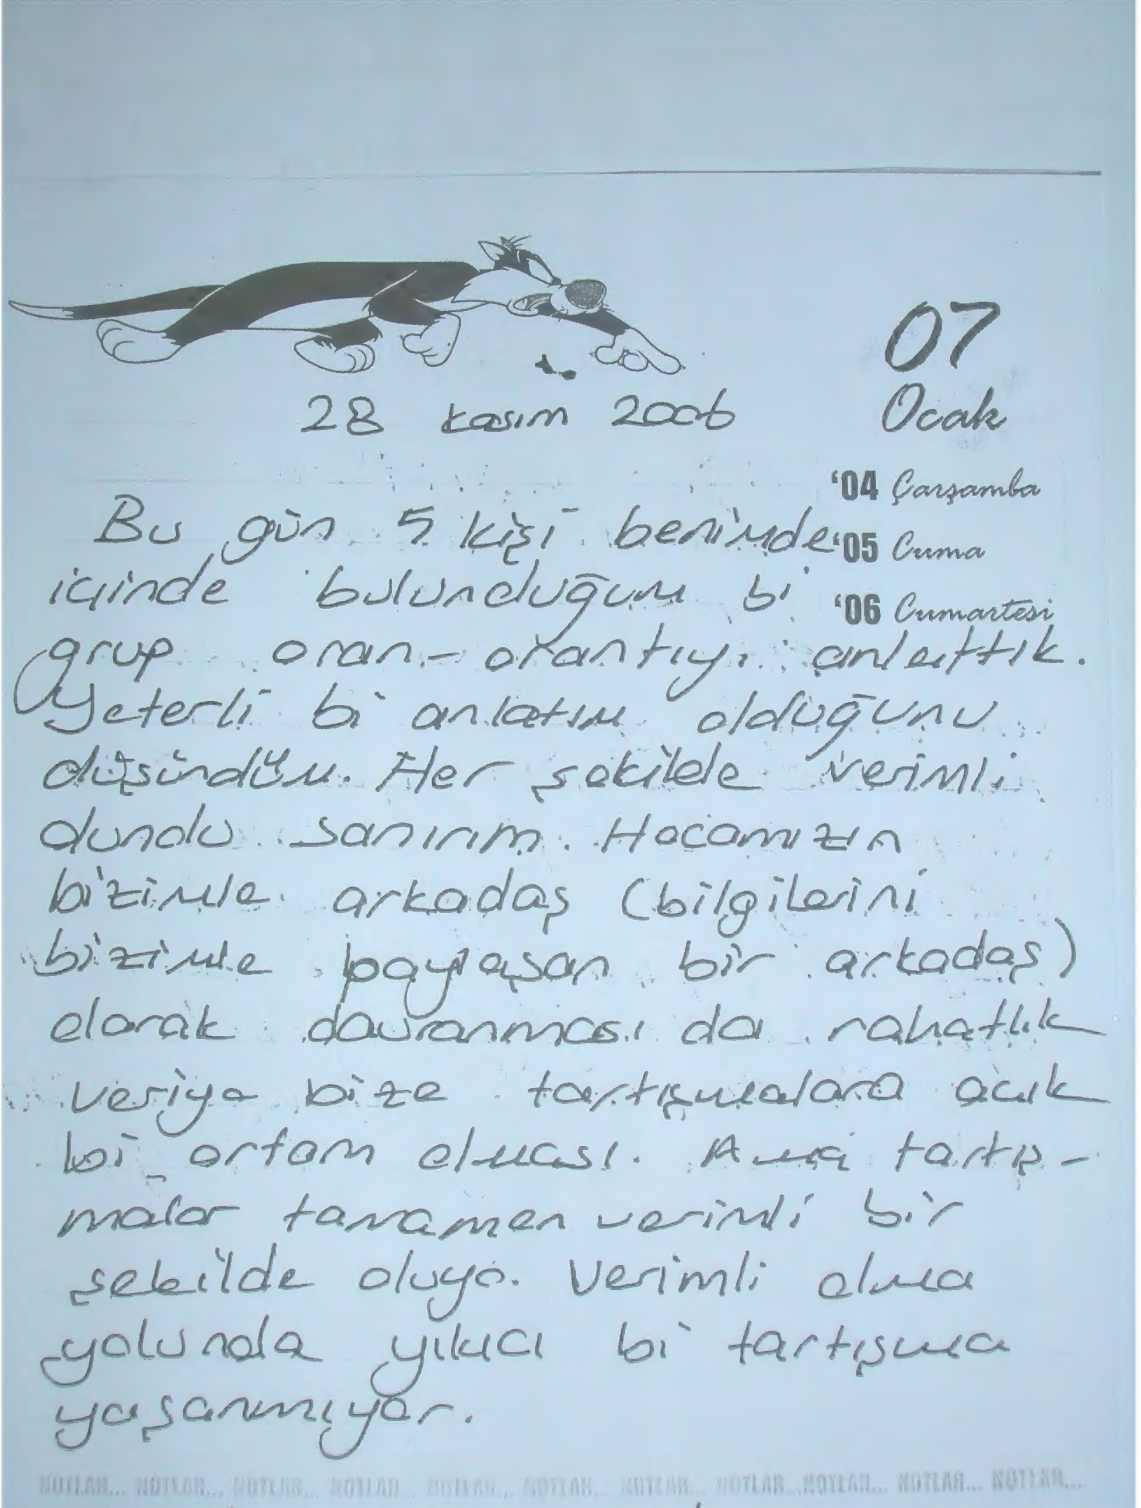 07
Ocak
28 kasım 2006
'04 Çarşamba
Bu gün 5 kişi benimde
'05 Cuma
içinde bulunduğum bi
'06 Cumartesi
grup oran-orantıyı anlattık.
Yeterli bi anlatım olduğunu
düşündüm. Her şekilde verimli
Hocamızın
sanırım.
bizimle arkadaş (bilgilerini
bizimle paylaşan bir arkadaş)
olarak davranması da rahatlık
veriyo bize tartışmalara açık
bi ortam olması. Ama tartış-
malar tamamen verimli bir
şekilde oluyo. Verimli olma
yolunda yıkıcı bi tartışma
yaşanmıyor.
NOTLAR... NOTLAR... NOTLAR... NOTLAR... NOTLAR... NOTLAR... NOTLAR... NOTLAR...NOTLAR... NOTLAR... NOTLAR...